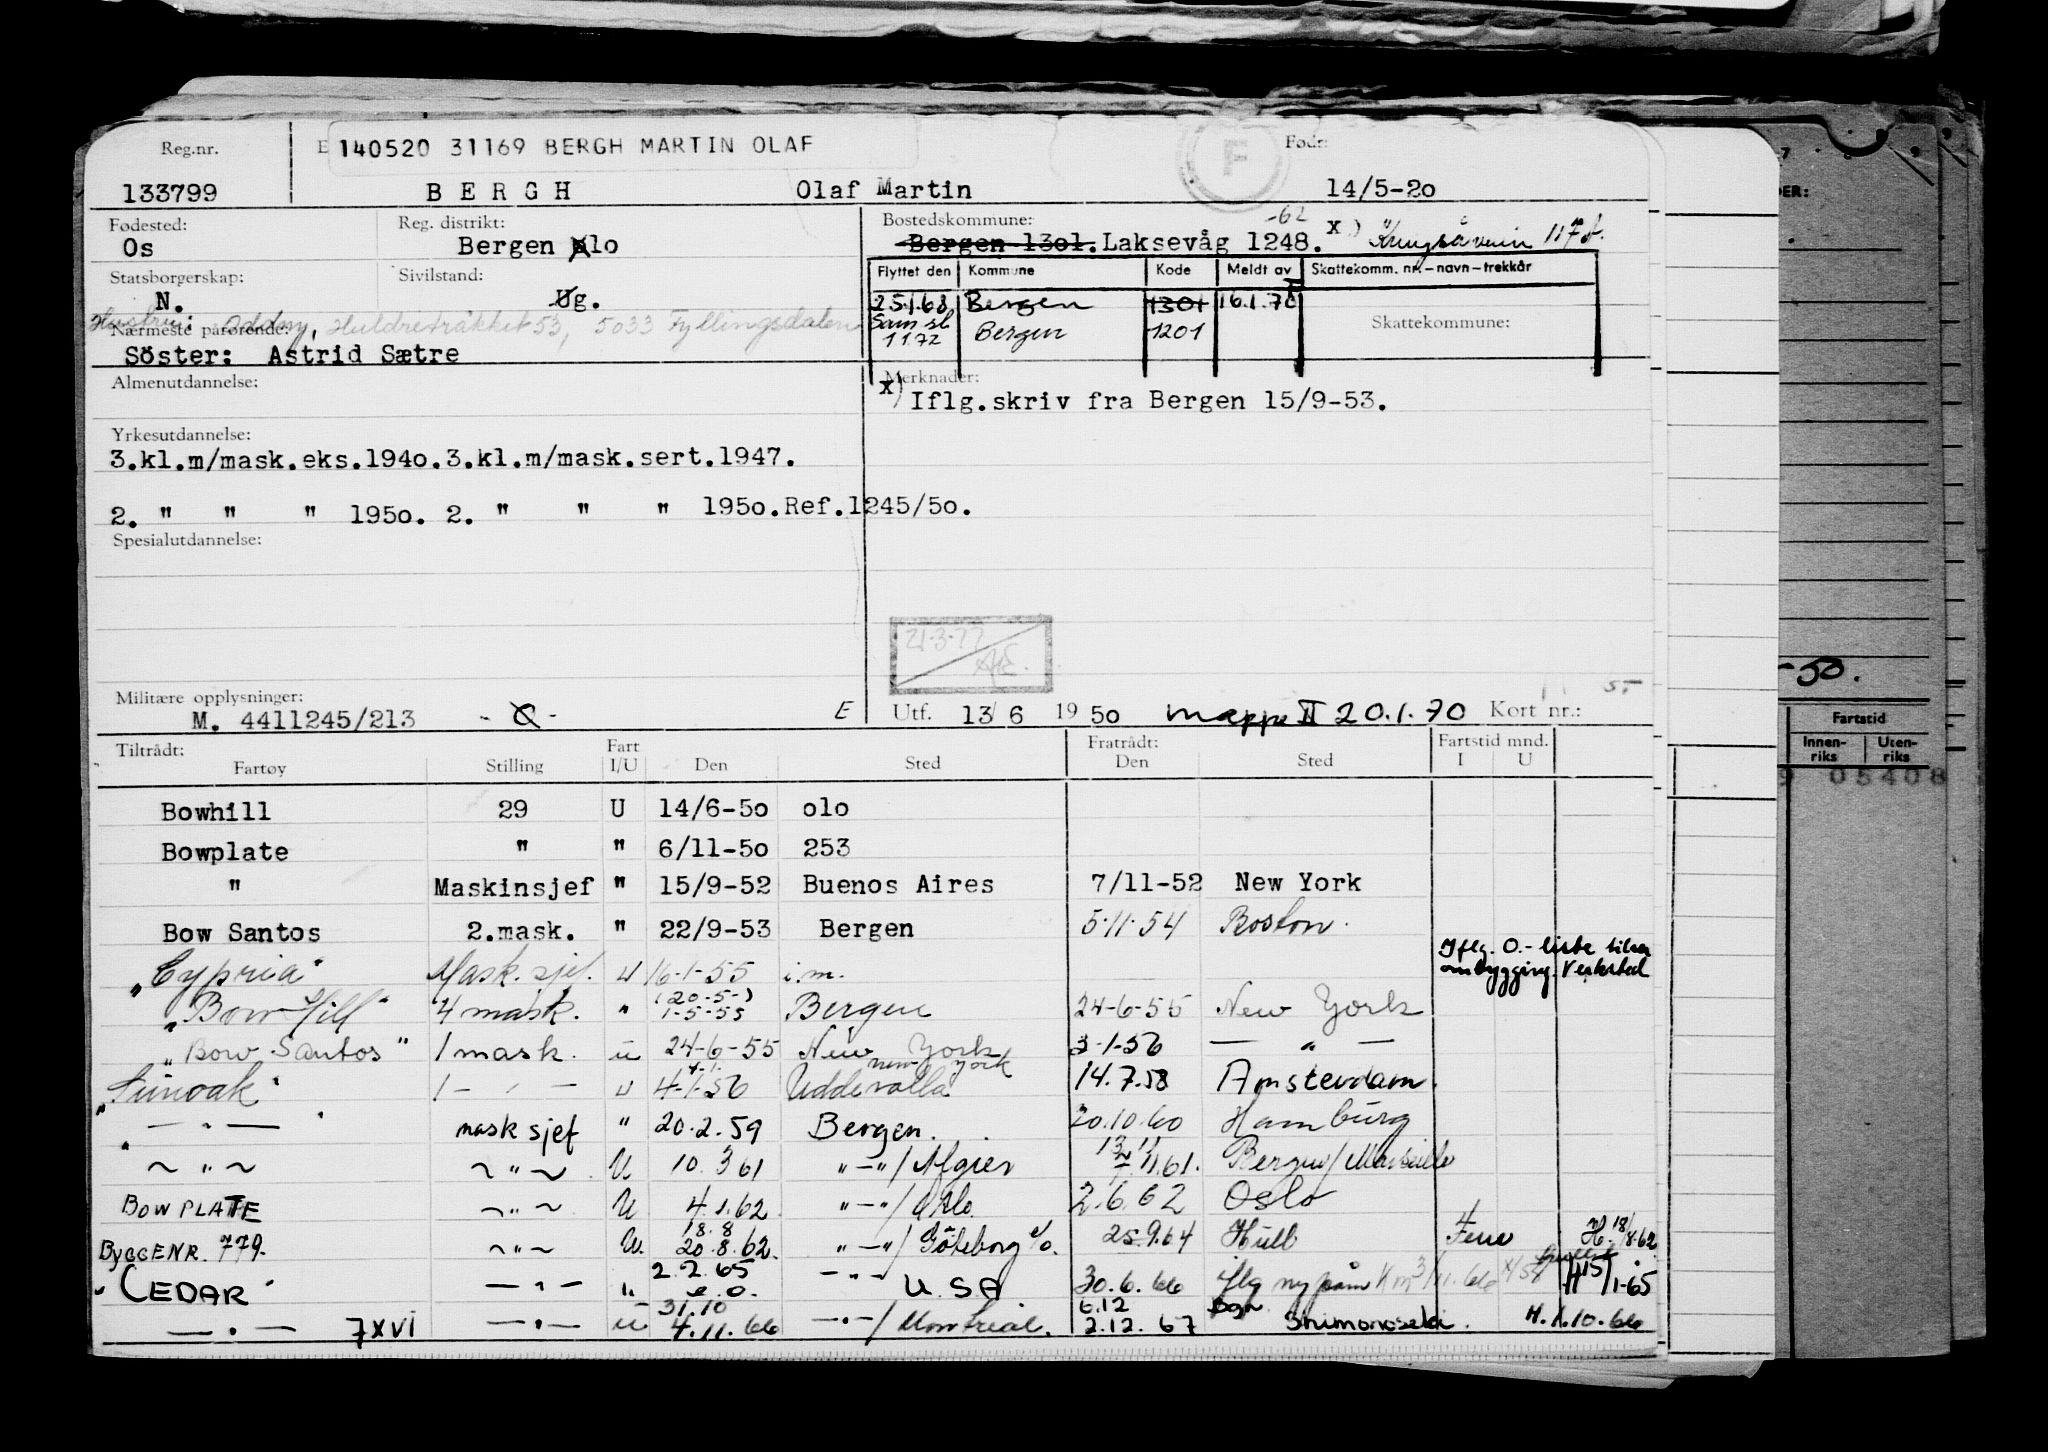 Reg.nr.
140520 31169 BERGH MARTIN OLAF
F
Født:
133799 BERGH Olaf Martin 14/5-20
Fødested: Reg. distrikt: Bostedskommune: -62
Os Bergen olo Bergen 1301. Laksevåg 1248. x) 117A.
Statsborgerskap: Sivilstand:
N. Ug.
Flyttet den Kommune Kode Meldt av Skattekomm. nr.–navn–trekkår
25.1.68 Bergen 1301 16.1.70 F
Sam sl 1 1 72 Bergen 1201
Skattekommune:
Hustru: Oddny, Huldretråkket 53, 5033 Fyllingsdalen
Nærmeste pårørende:
Söster: Astrid Sætre
Almenutdannelse:
Merknader:
x) Iflg.skriv fra Bergen 15/9-53.
Yrkesutdannelse:
3.kl.m/mask.eks.1940.3.kl.m/mask.sert.1947.
2. " " " 1950. 2. " " " 1950.Ref.1245/50.
Spesialutdannelse:
21-3-77
Militære opplysninger:
M. 4411245/213 E
Utf. 13/6 1950 mappe II 20.1.70 Kort nr.:
Tiltrådt: Fratrådt: Fartstid mnd.
Fartøy Stilling Fart I/U Den Sted Den Sted I U
Bowhill 29 U 14/6-50 olo
Bowplate " " 6/11-50 253
" Maskinsjef " 15/9-52 Buenos Aires 7/11-52 New York
Bow Santos 2.mask. " 22/9-53 Bergen 5-11-54 Boston.
Iflg. O.-liste
ombygging. Verksted
"Cypria" Mask.sjef. U 16-1-55 i.m.
"Bow Hill" 4 mask. " (20-5-) 1-5-55 Bergen 24-6-55 New York
"Bow Santos" 1 mask. u 24-6-55 New York 3-1-56 — " —
"Sunoak" 1 - " - u 4-1. 4-1-56 new york Uddevalla 14.7.58 Amsterdam.
" — " — " mask sjef " 20.2.59 Bergen. 20.10.60 Hamburg
~ " ~ ~ " ~ U 10.3 61 " — " / Algier 11.61. Bergen / Marseille
BOW PLATE ~ " ~ U 4.1.62 " — " / 2.6.62 Oslo
BYGGENR. 779. ~ " ~ U. 18.8 20.8.62. " — " / Göteborg 25.9.64 Hull 4 H. 18/8.62
"CEDAR" — " — " 2.2.65 e.o. — " — U.SA 30.6.66 H 15/1-65
— " — 7XVI — " — u 31.10 4.11.66 — " — / Montreal. 6.12 2.12.67 Bgn Shimonoseki. H.1.10.66
-50.
Fartstid
Innen-riks Uten-riks
05408